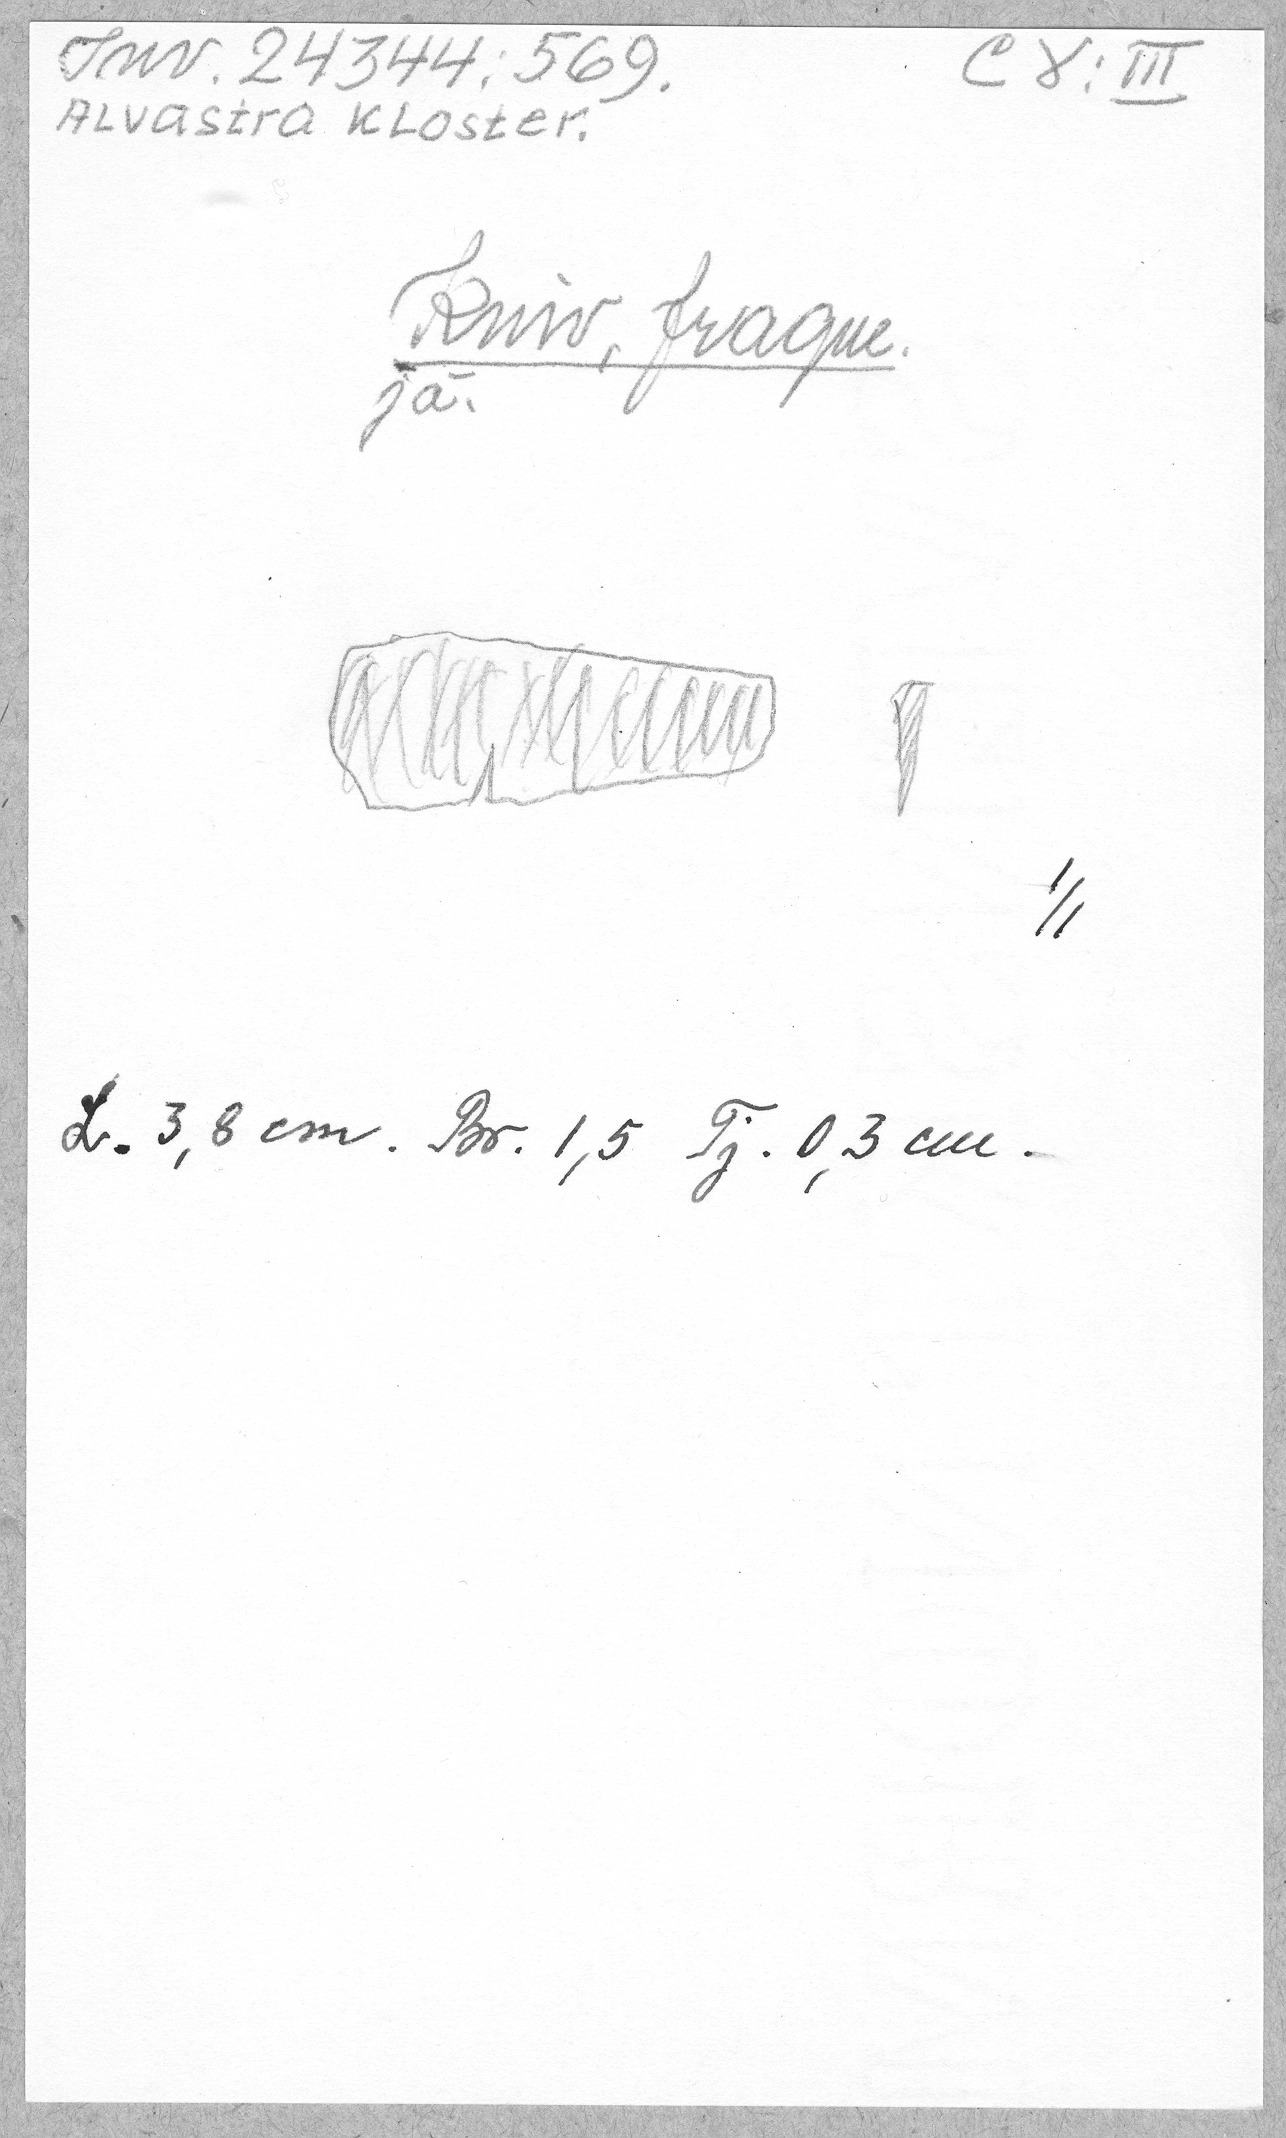 Inv. 24344:569. C γ: III
Alvastra Kloster.
Kniv, fragm.
jä.
1/1
L. 3,8 cm. Br. 1,5 Tj. 0,3 cm.